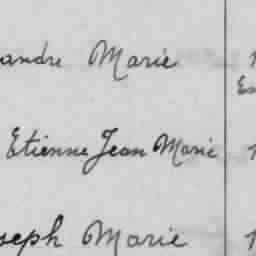 andre Marie
Etienne Jean Marie
seph Marie